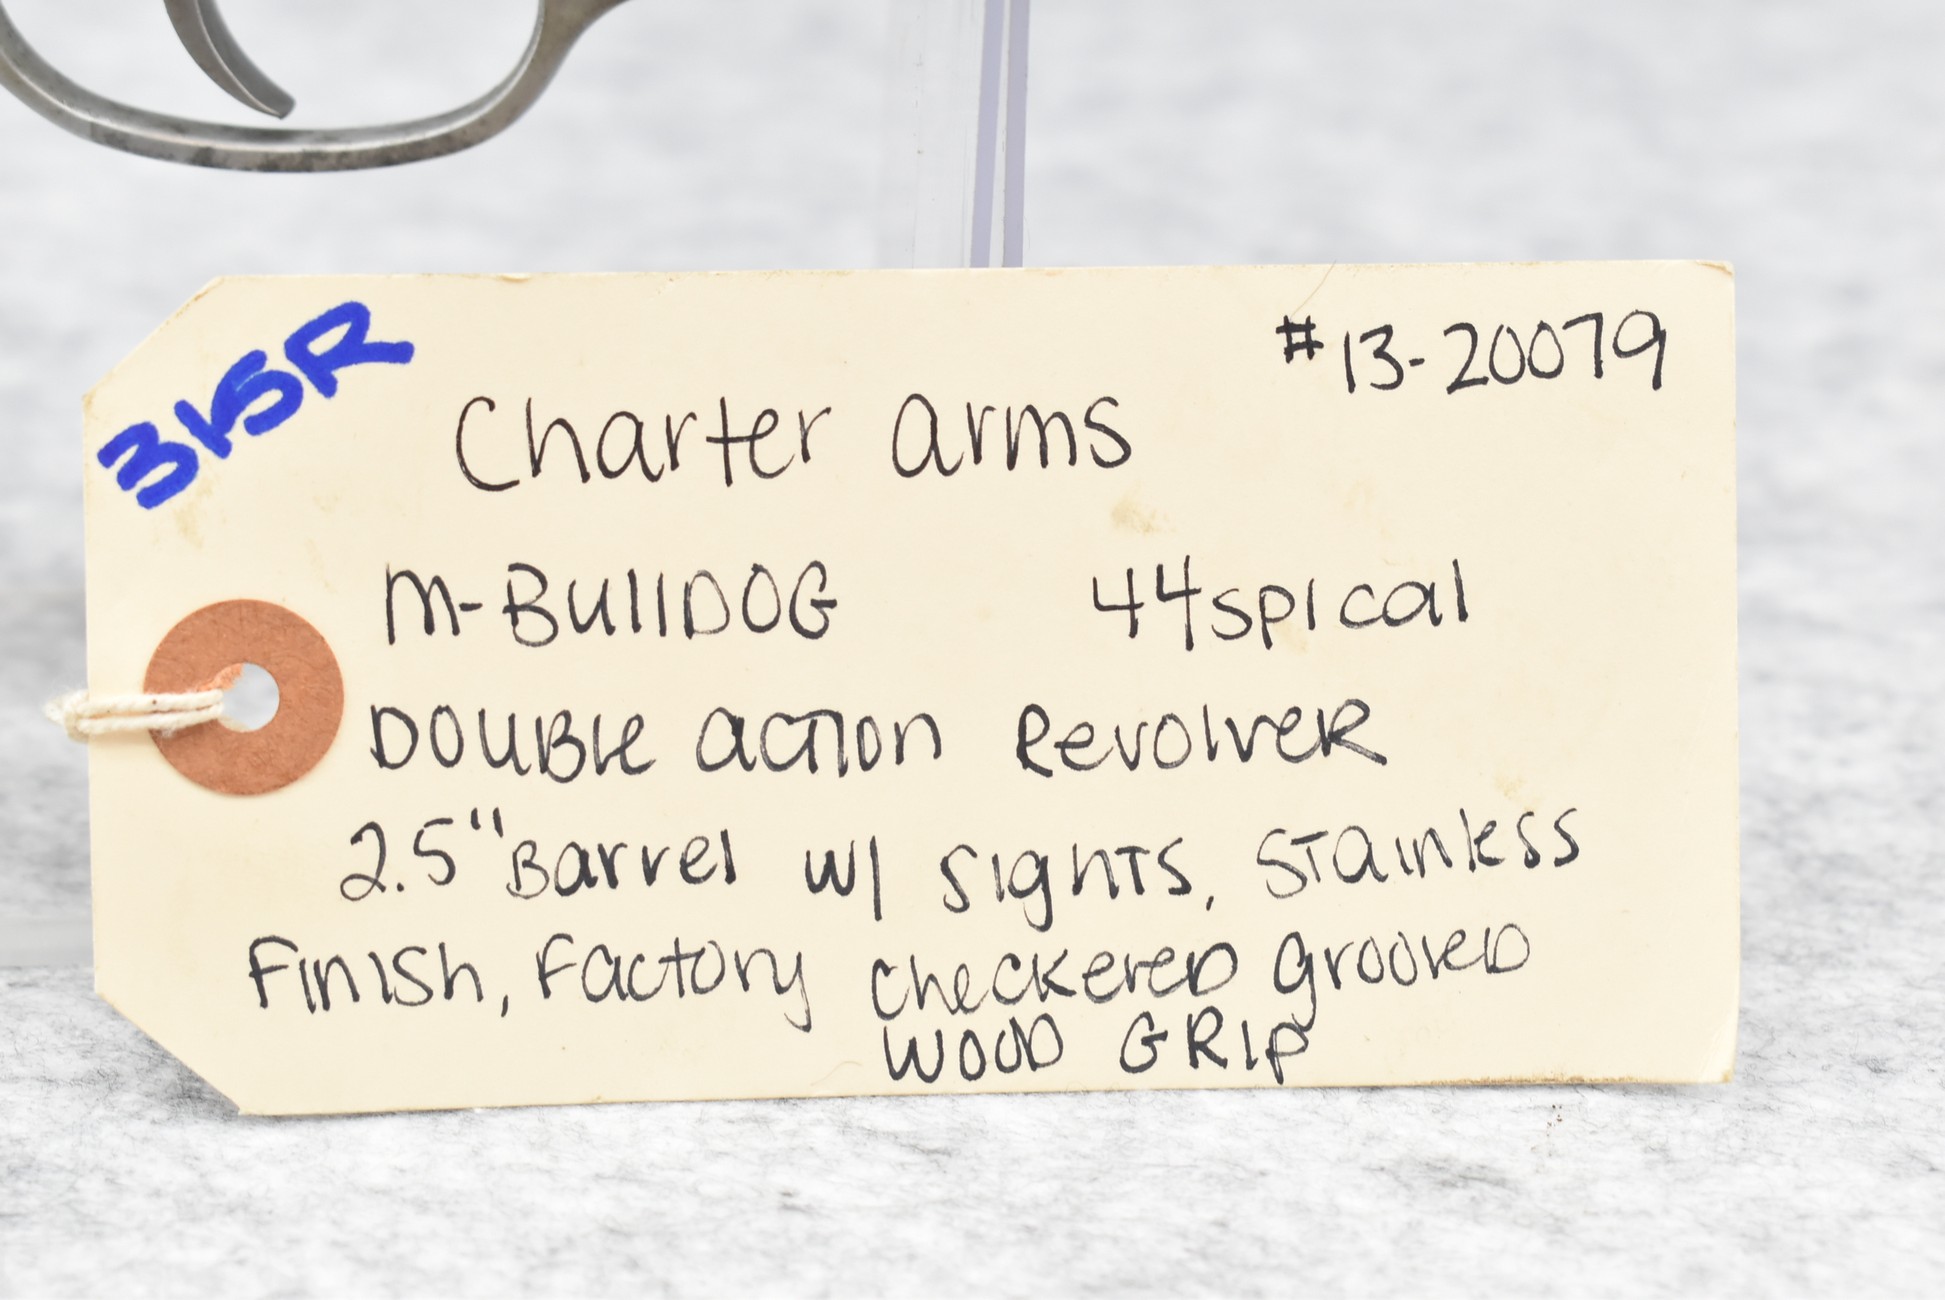 315R
#13-20079
Charter arms
M-BullDOG 44spl cal
DOUBle action RevolveR
2.5" Barrel w/ sights, stainless
Finish, Factory checkereD grooveD
WOOD GRip